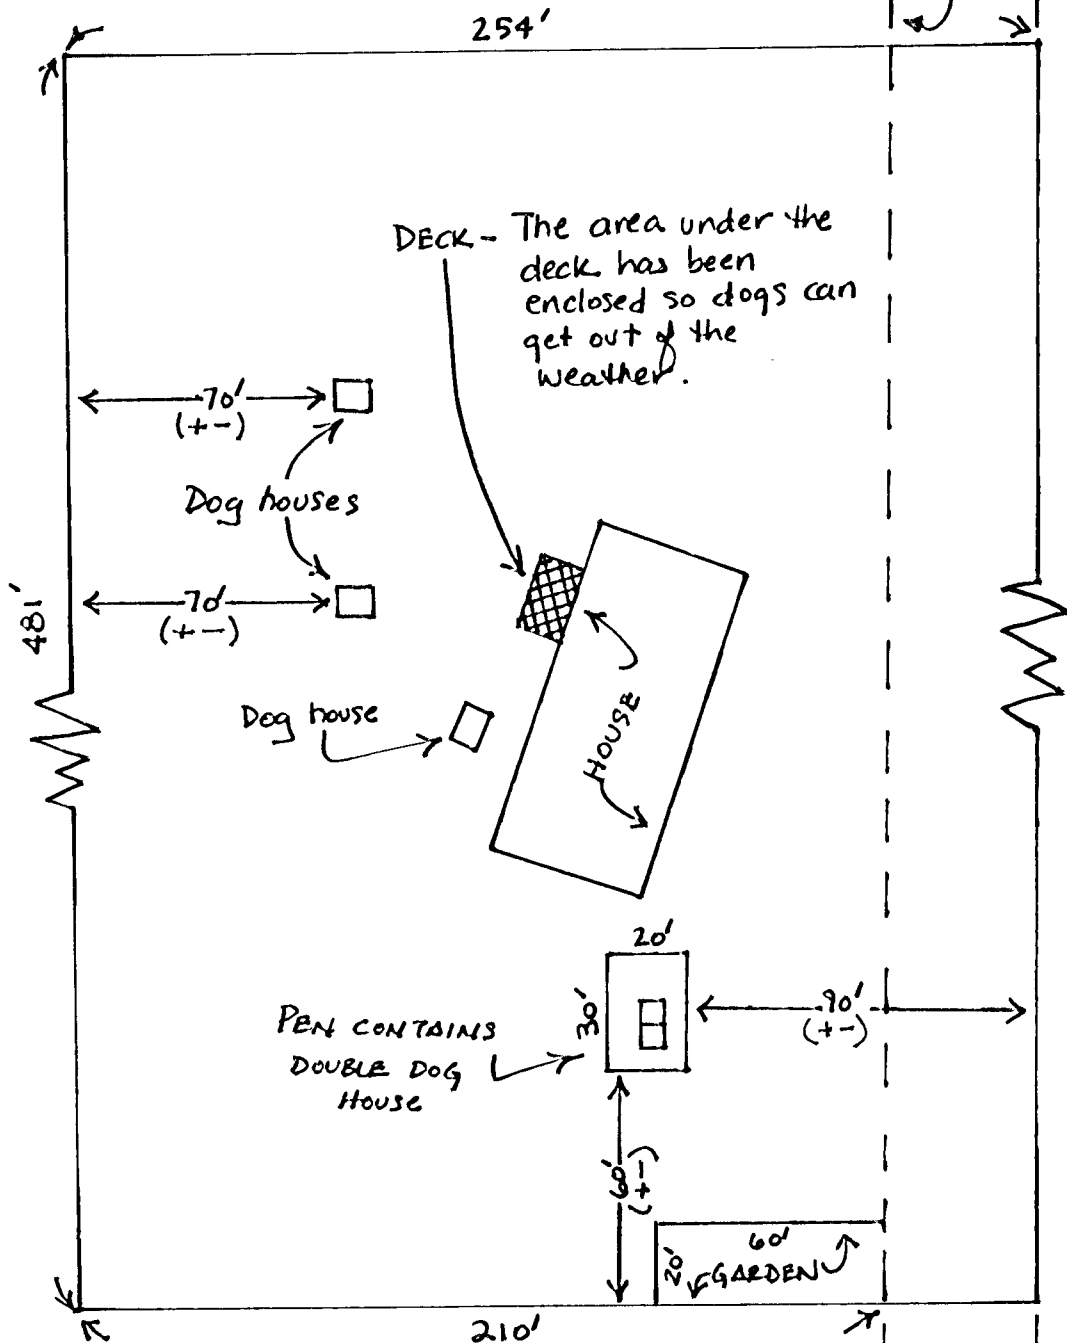 254'
DECK - The area under the
deck has been
enclosed so dogs can
get out of the
weather.
70'
(+-)
Dog houses
481'
70'
(+-)
Dog house
HOUSE
20'
30'
90'
(+-)
PEN CONTAINS
DOUBLE DOG
HOUSE
60'
(+-)
60'
20'
GARDEN
210'